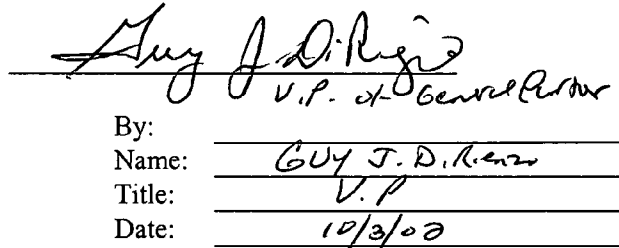 Guy J. DiRienzo
V.P. of General Partner
By:
Name: GUY J. DiRienzo
Title: V.P
Date: 10/3/02